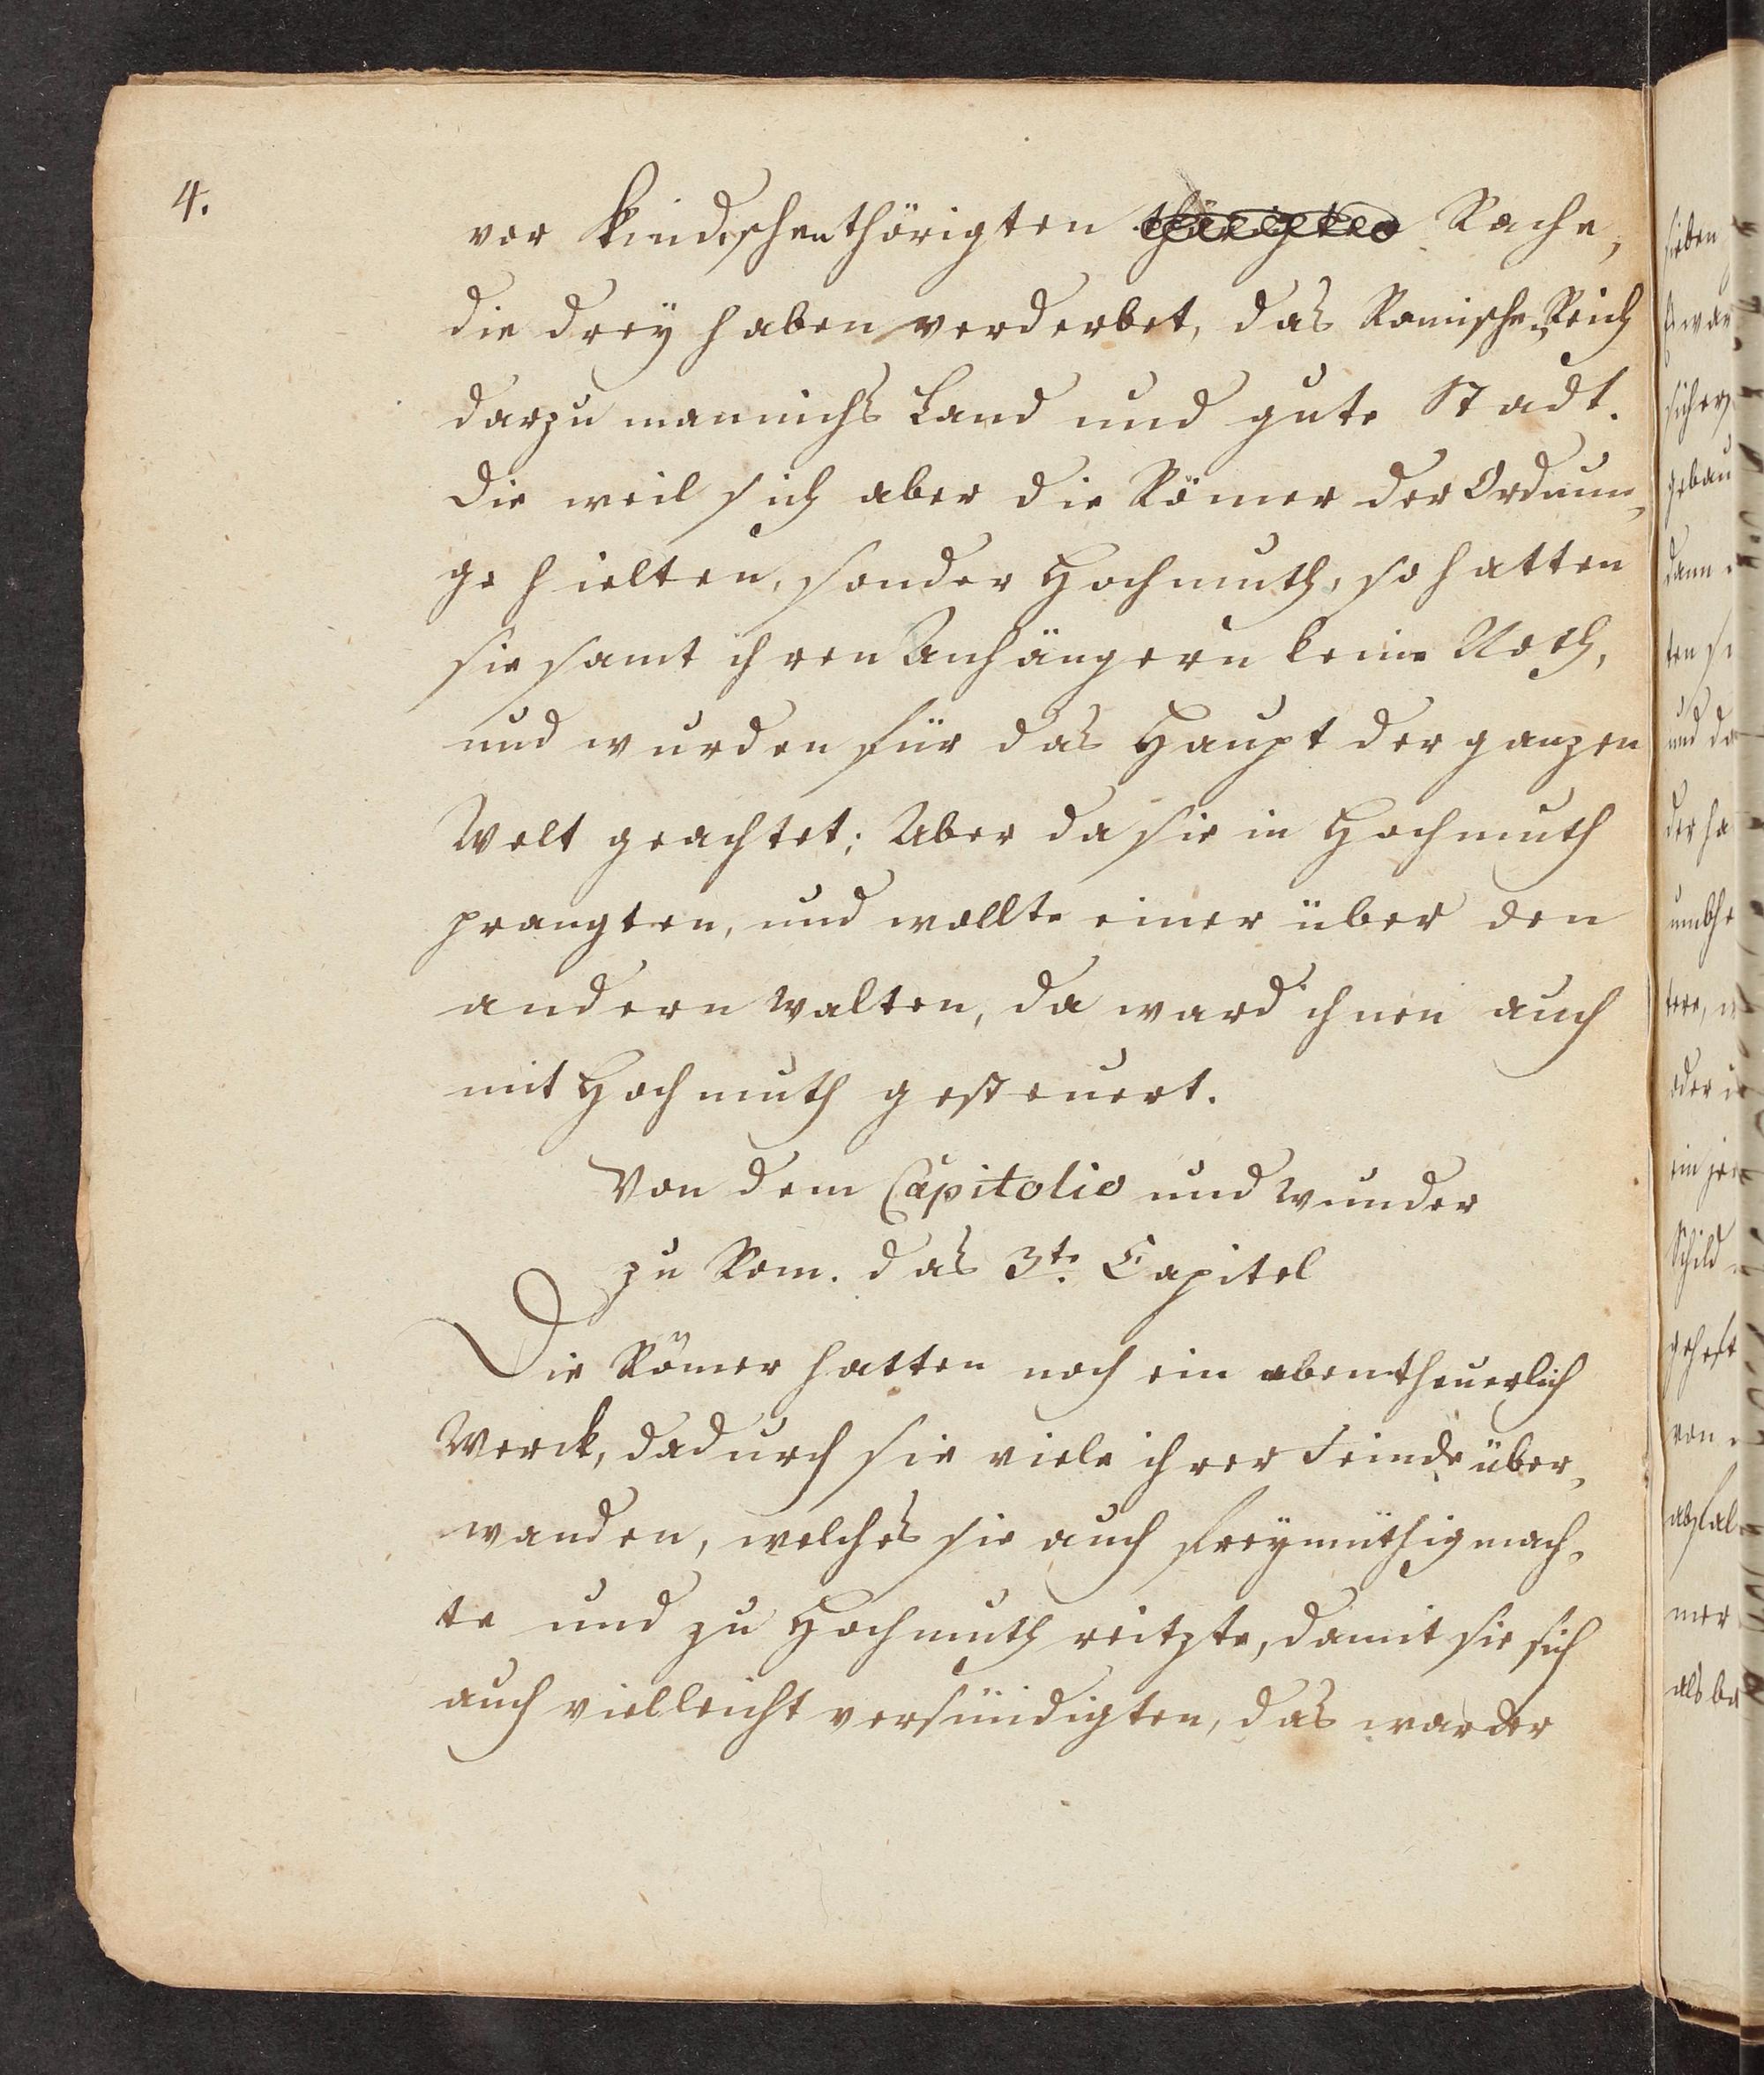 4.
vor kindischen thörigten Rache,
die dreÿ haben verderbet, das Romische Reich
darzu mannichs Land und gute Stadt.
Die weil sich aber die Römer der Ordnun-
ge hielten, sonder Hochmuth, so hatten
sie samt ihren Anhängern keine Noth,
und wurden für das Haupt der ganzen
Welt geachtet; Aber da sie in Hochmuth
prangten, und wollte einer über den
andern walten, da ward ihnen auch
mit Hochmuth gesteuert.
Von dem Capitolio und Wunder
zu Rom. das 3te Capitel
Die Römer hatten noch ein abentheuerlich
Werck, dadurch sie viele ihrer Feinde über-
wanden, welches sie auch freÿmüthig mach-
te und zu Hochmuth reitzte, damit sie sich
auch vielleicht versündigten, das war der